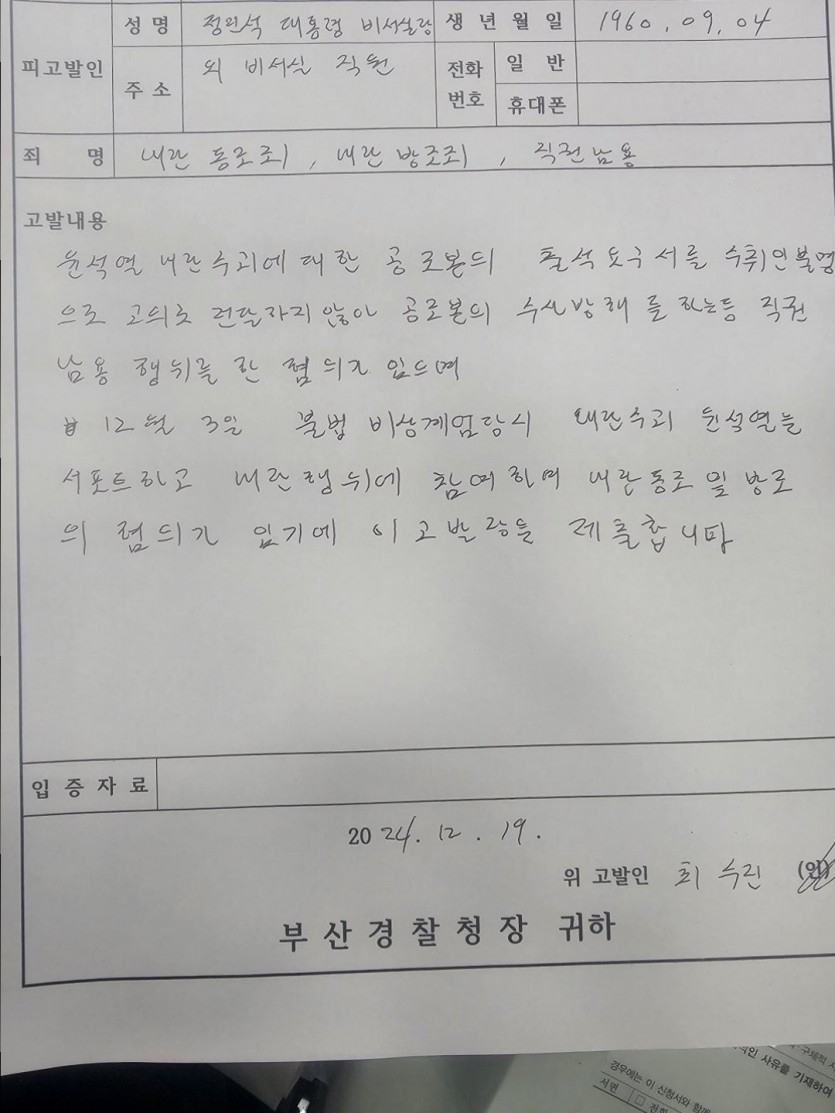 피고발인
성 명 정진석 대통령 비서실장 생 년 월 일 1960. 09. 04
주 소 외 비서실 직원 전화번호 일 반
휴대폰
죄 명 내란 동조죄, 내란 방조죄, 직권남용
고발내용
윤석열 내란수괴에 대한 공조본의 출석요구서를 수취인불명
으로 고의로 전달하지 않아 공조본의 수사방해를 하는등 직권
남용 행위를 한 혐의가 있으며
12월 3일 불법 비상계엄당시 내란수괴 윤석열을
서포트하고 내란행위에 참여하며 내란동조 및 방조
의 혐의가 있기에 이 고발장을 제출합니다
입 증 자 료
2024. 12. 19.
위 고발인 최수진 (인)
부 산 경 찰 청 장 귀하
구체적 사
적인 사유를 기재하여
경우에는 이 신청서와 함께
서면 □